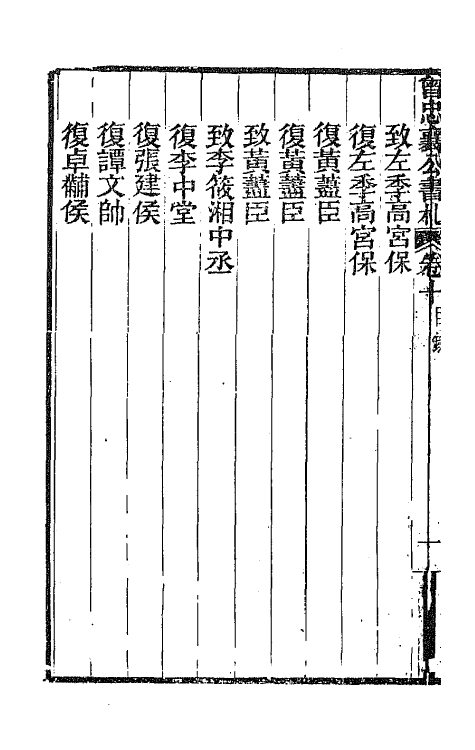 曾忠襄公書札卷十目錄
致左季高宮保
復左季高宮保
復黃藎臣
復黃藎臣
致黃藎臣
致李筱湘中丞
復李中堂
復張建侯
復譚文帥
復卓黼侯